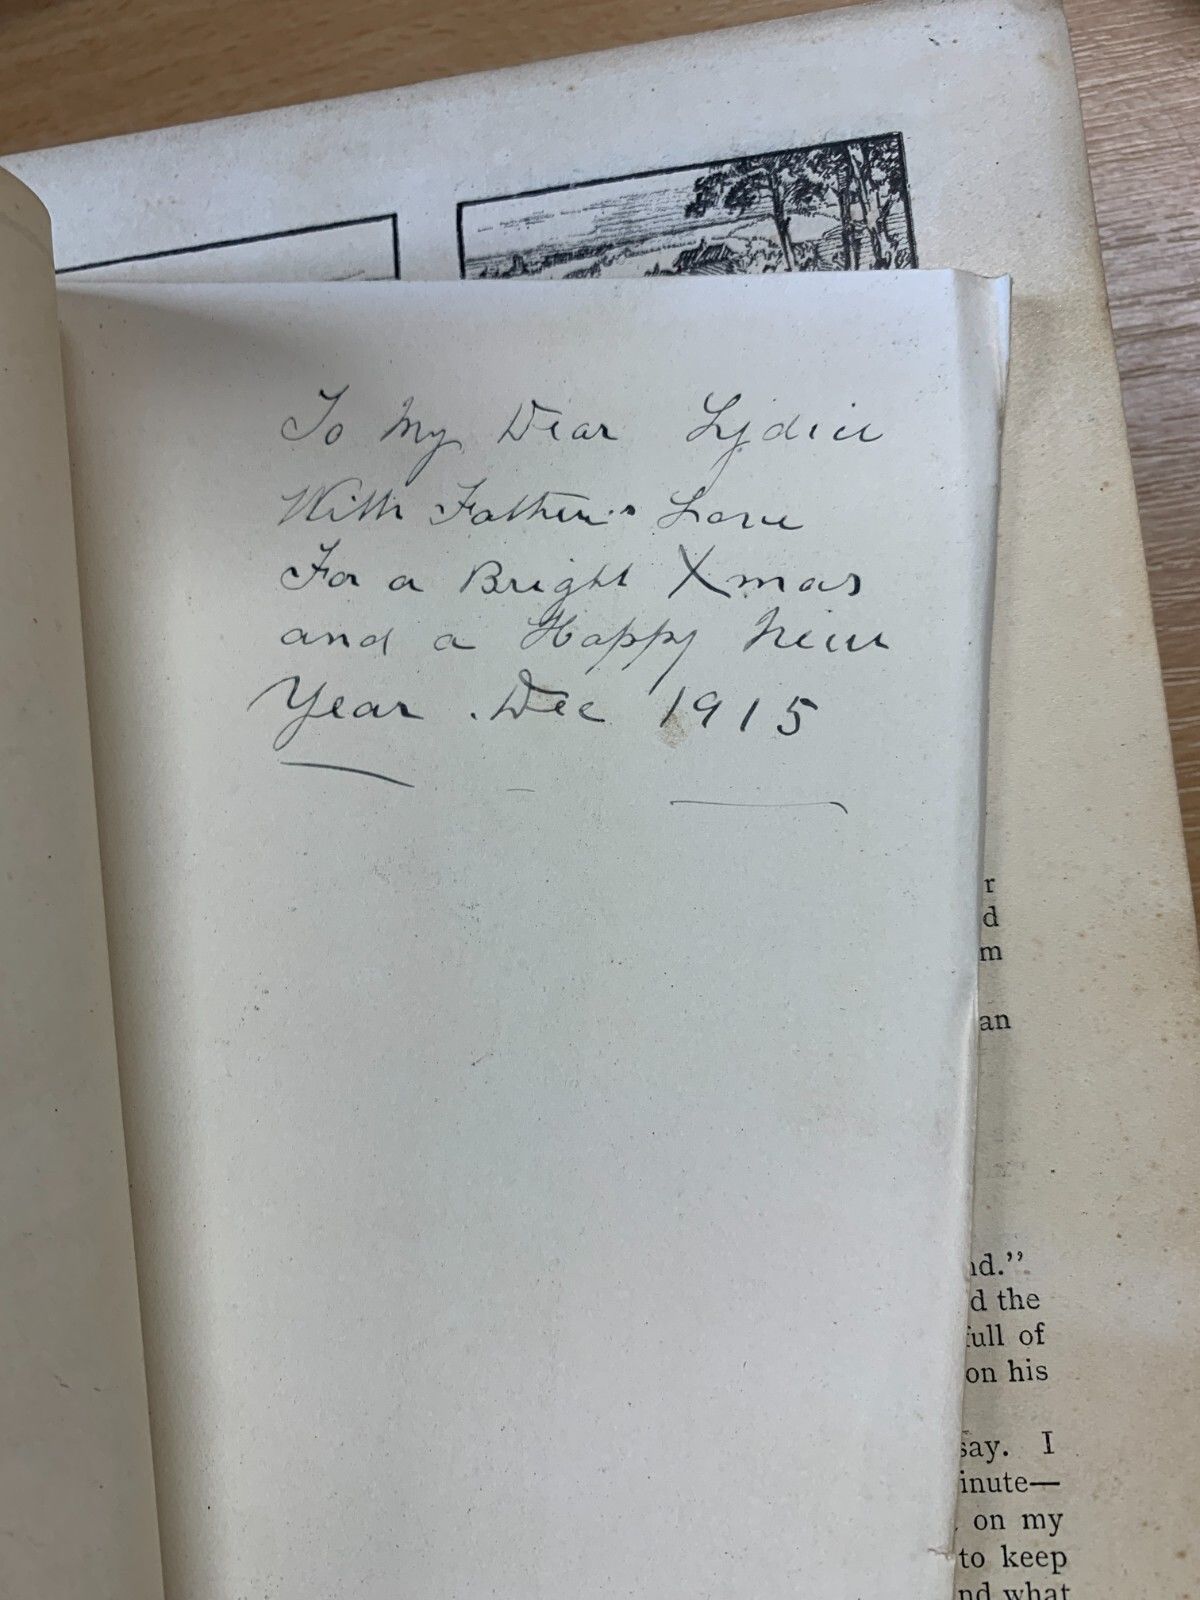 To My Dear Lydia
With Father's Love
For a Bright Xmas
and a Happy New
Year . Dec 1915
r
d
m
an
nd.”
d the
full of
on his
say. I
inute—
on my
to keep
nd what